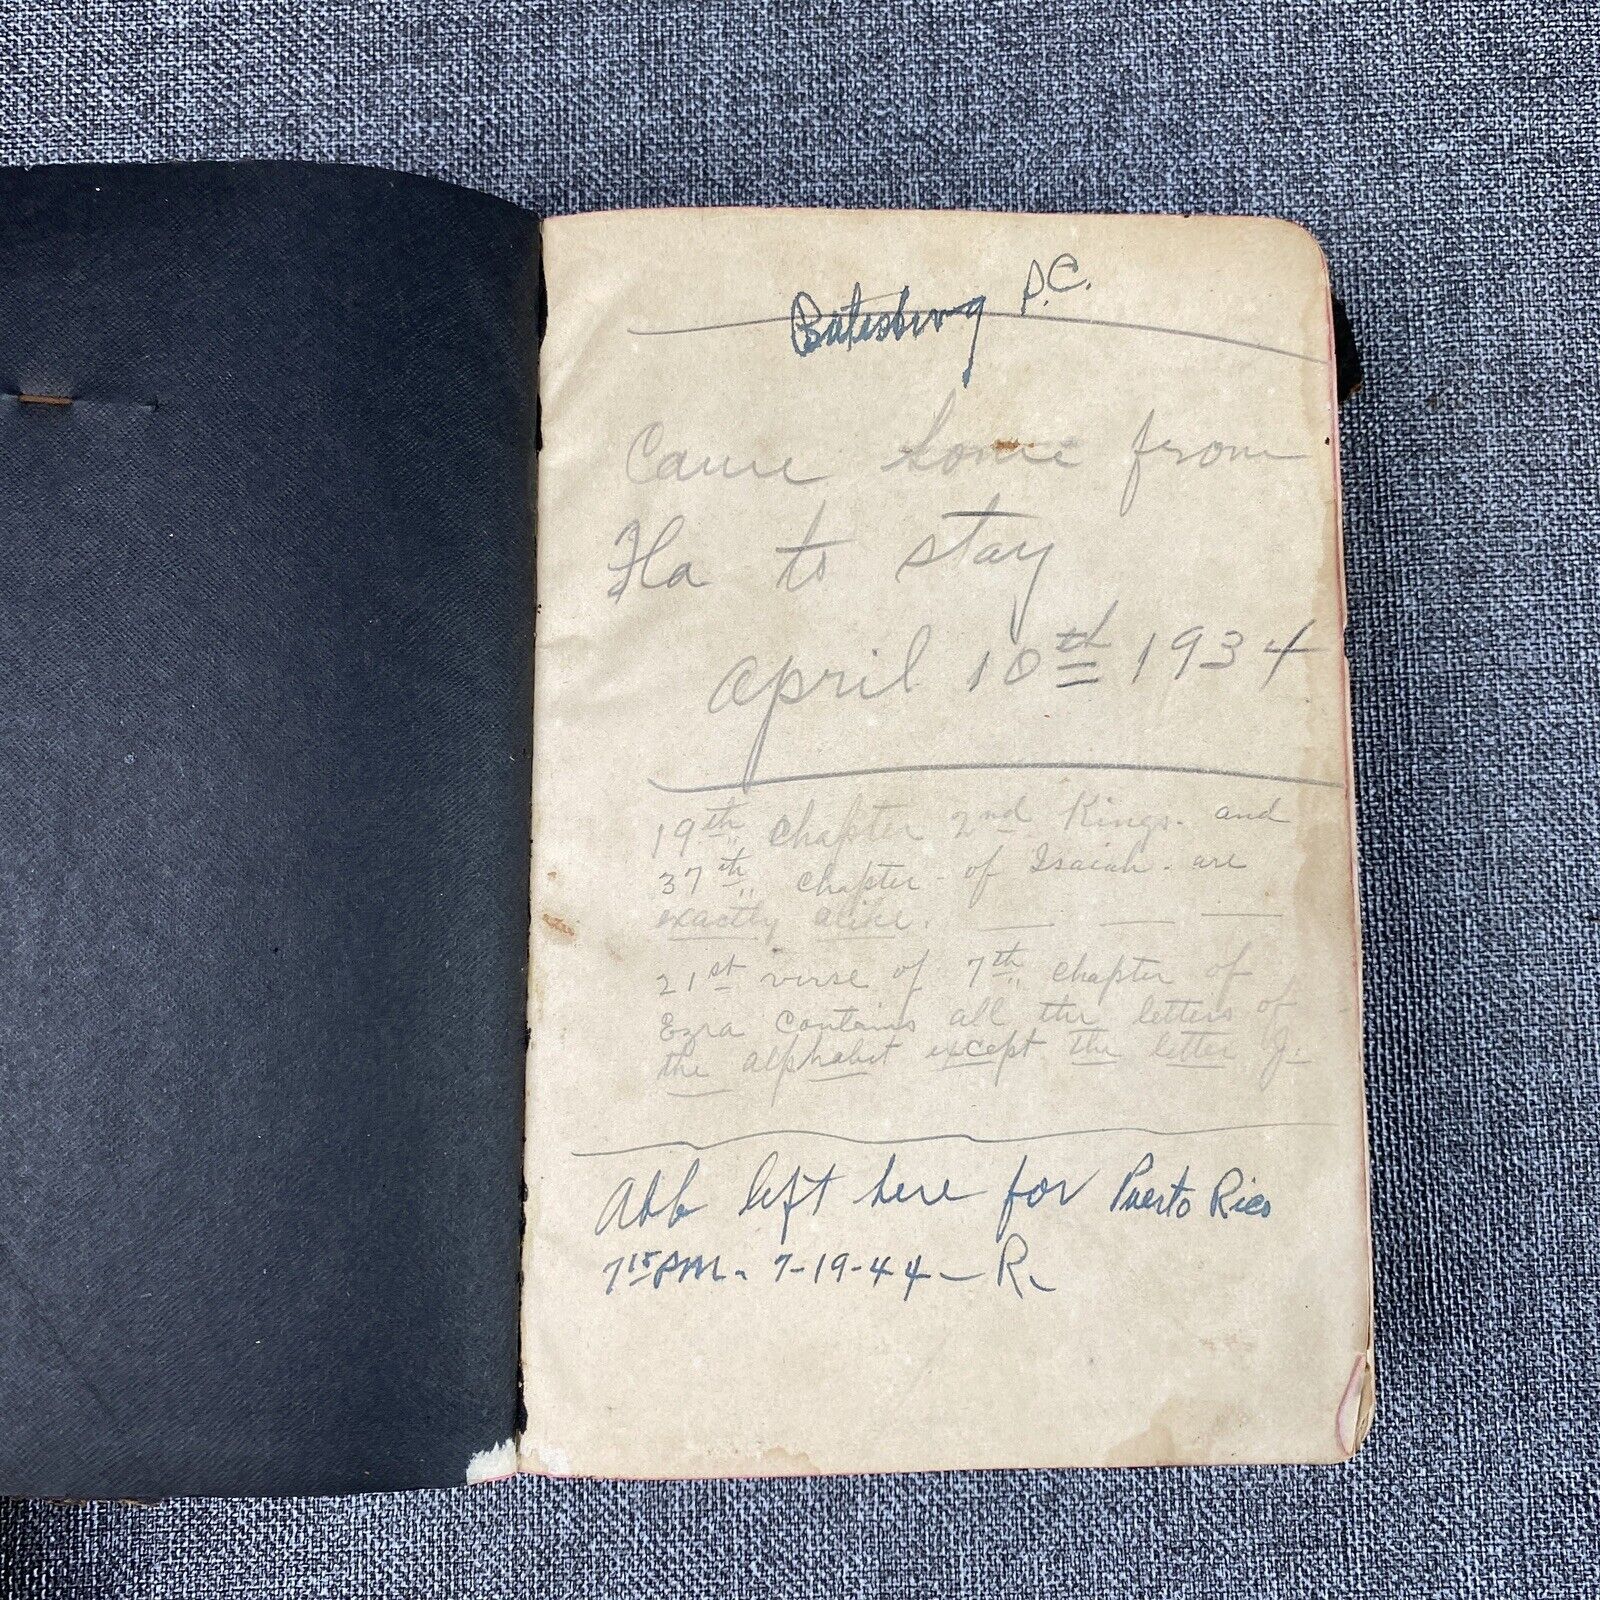 Batesburg S.C.
Came home from
Fla to stay
April 10th 1934
19th chapter 2nd Kings. and
37th chapter - of Isaiah - are
exactly alike.
21st verse of 7th chapter of
Ezra contains all the letters of
the alphabet except the letter J.
Abb left here for Puerto Rico
7 15 PM. 7-19-44 - R.